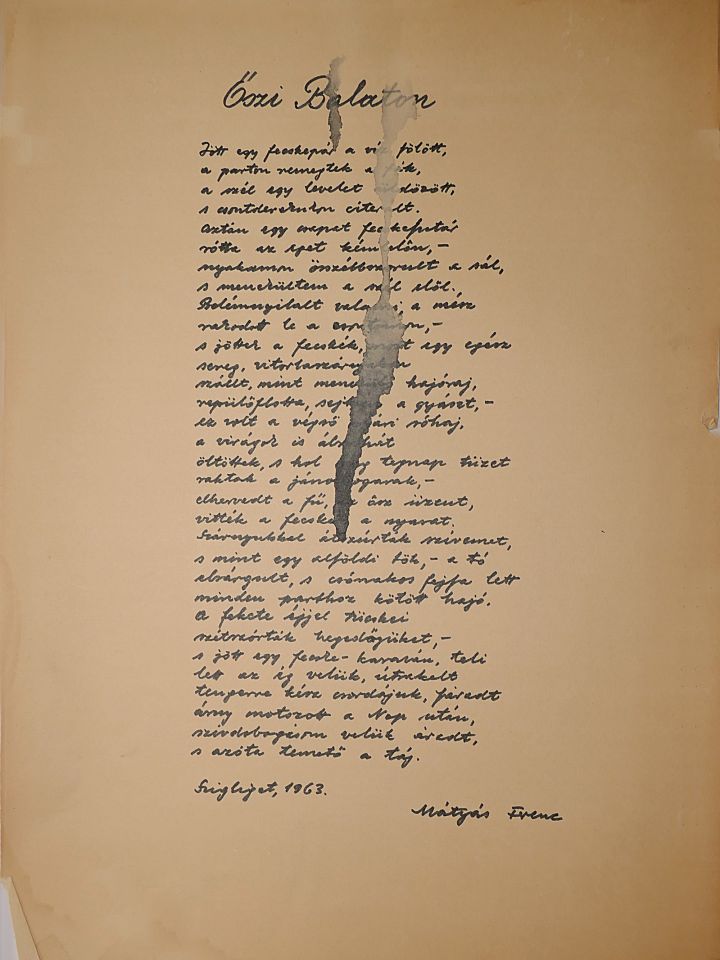 Őszi Balaton
Jött egy fecskepár a víz fölött,
a parton remegtek a fák,
a szél egy levelet üldözött,
s csontdereknkon citerált.
Aztán egy csapat fecskefutár
rótta az eget kémlelőn,—
nyakamon összébbszorult a sál,
s menekültem a szél elől.
Belémnyilalt valami, a mész
rakodott le a csontomon,—
s jöttek a fecskék, most egy egész
sereg, vitorlaszárnyakon
szállt, mint menekülő hajóraj,
repülőflotta, sejtve a gyászt,—
ez volt a végső nyári sóhaj,
a virágok is álruhát
öltöttek, s hol egy tegnap tüzet
raktak a jánosbogarak,—
elhervedt a fű, az ősz üzent,
vitték a fecskék a nyarat.
Szárnyukkal átszúrták szívemet,
s mint egy alföldi tök,— a tó
elsárgult, s csónakos fejfa lett
minden parthoz kötött hajó.
A fekete éjjel tücskei
szétszórták hegedőjüket,—
s jött egy fecske-karaván, teli
lett az ég velük, útrakelt
tengerre kész csordájuk, fáradt
árny motozott a Nap után,
szívdobogásom velük áradt,
s azóta temető a táj.
Szigliget, 1963.
Mátyás Ferenc